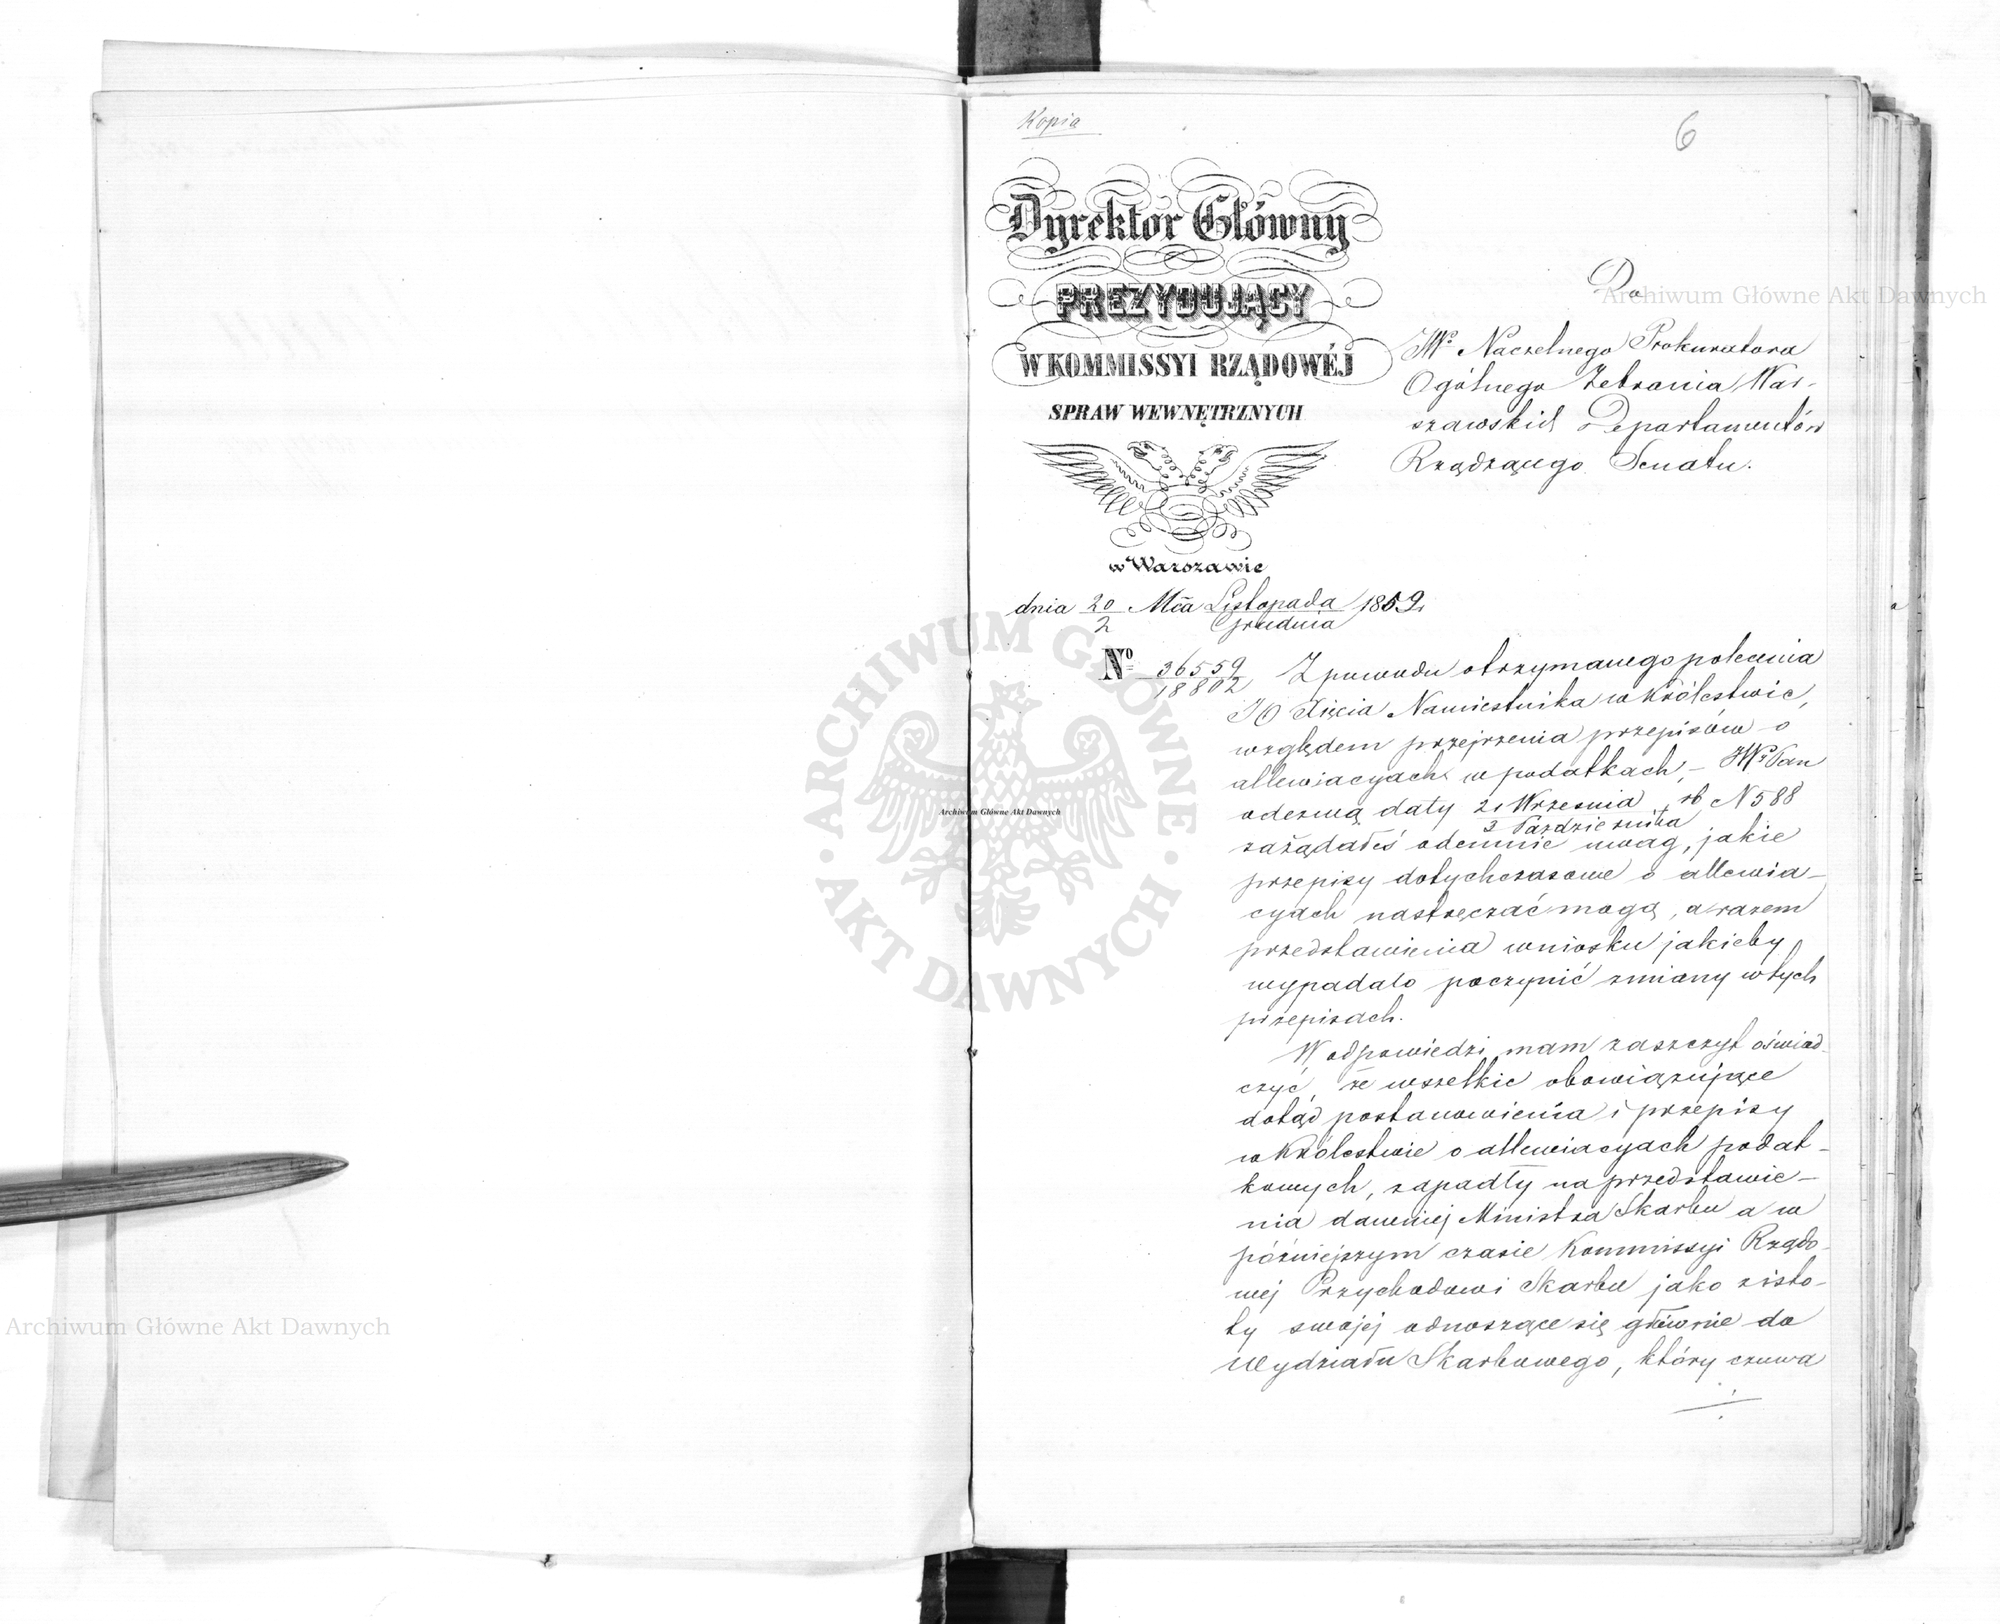 Kopia
6
Dyrektor Główny
PREZYDUJĄCY
W KOMMISSYI RZĄDOWÉJ
SPRAW WEWNĘTRZNYCH
w Warszawie
dnia 20/2 Mca Listopada/Grudnia 1859.
Nº 36559/18802
Do
JWº Naczelnego Prokuratora
Ogólnego Zebrania War-
szawskich Departamentów
Rządzącego Senatu.
Z powodu otrzymanego polecenia
JO Xięcia Namiestnika w Królestwie,
względem przejrzenia przepisów o
allewiacyach w podatkach, – JWº Pan
odezwą daty 21 Września/3 Października rb N 588
zażądałeś odemnie uwag, jakie
przepisy dotychczasowe o allewia-
cyach nastręczać mogą, a razem
przedstawienia wniosku jakieby
wypadało poczynić zmiany w tych
przepisach.
W odpowiedzi mam zaszczyt oświad-
czyć, że wszelkie obowiązujące
dotąd postanowienia i przepisy
w Królestwie o allewiacyach podat-
kowych, zapadły na przedstawie-
nia dawniej Ministra Skarbu a w
późniejszym czasie Kommissyi Rządo-
wej Przychodów i Skarbu jako z isto-
ty swojej odnoszące się głównie do
Wydziału Skarbowego, który czuwa
Archiwum Główne Akt Dawnych
Archiwum Główne Akt Dawnych
Archiwum Główne Akt Dawnych
ARCHIWUM GŁÓWNE · AKT DAWNYCH ·